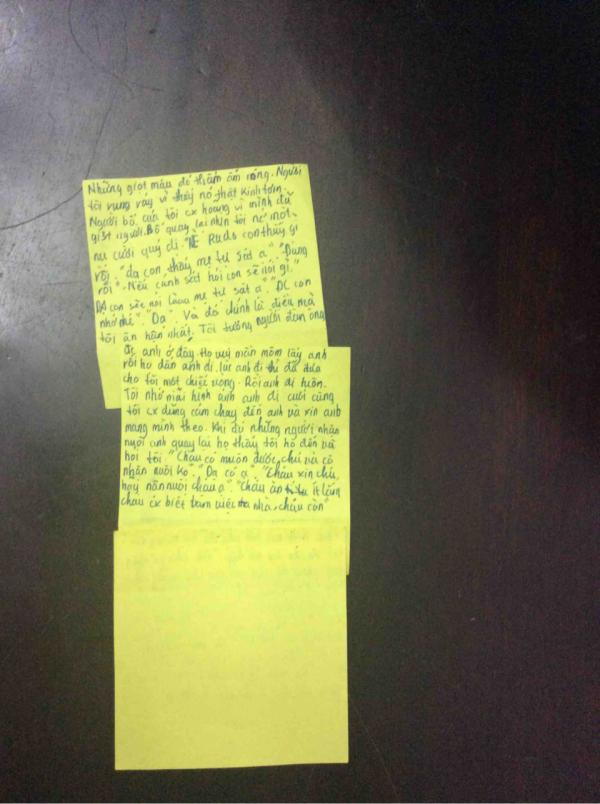 Những giọt máu đỏ thẫm ấm nóng. Người
tôi run rẩy vì thấy nó thật kinh tởm.
Người bố của tôi cx hoang vì mình đã
giết người. Bố quay lại nhìn tôi nở một
nụ cười quỷ dị. Rudo con thấy gì
rồi". "dạ con thấy mẹ tự sát ạ". "Đúng
rồi". Nếu cảnh sát hỏi con sẽ nói gì."
Dạ con sẽ nói là mẹ tự sát ạ". "ĐC con
nhớ nhé". "Dạ". Và đó chính là điều mà
tôi ân hận nhất. Tôi tưởng người đàn ông
ở đây. Họ mân mồm lấy anh
rồi họ dẫn anh đi. Lúc anh đi thì đã đưa
cho tôi một chiếc vòng. Rồi anh đi luôn.
Tôi nhớ mãi hình ảnh anh đi cuối cùng
tôi cx dũng cảm chạy đến anh và xin anh
mang mình theo. Khi đó những người nhận
nuôi anh quay lại họ thấy tôi họ đến và
hỏi tôi. "Cháu có muốn được chú và cô
nhận nuôi ko". "Dạ có ạ". "Cháu xin chú
hãy nhận nuôi cháu ạ". "Cháu ăn ít lắm
cháu cx biết làm việc nhà, cháu còn"